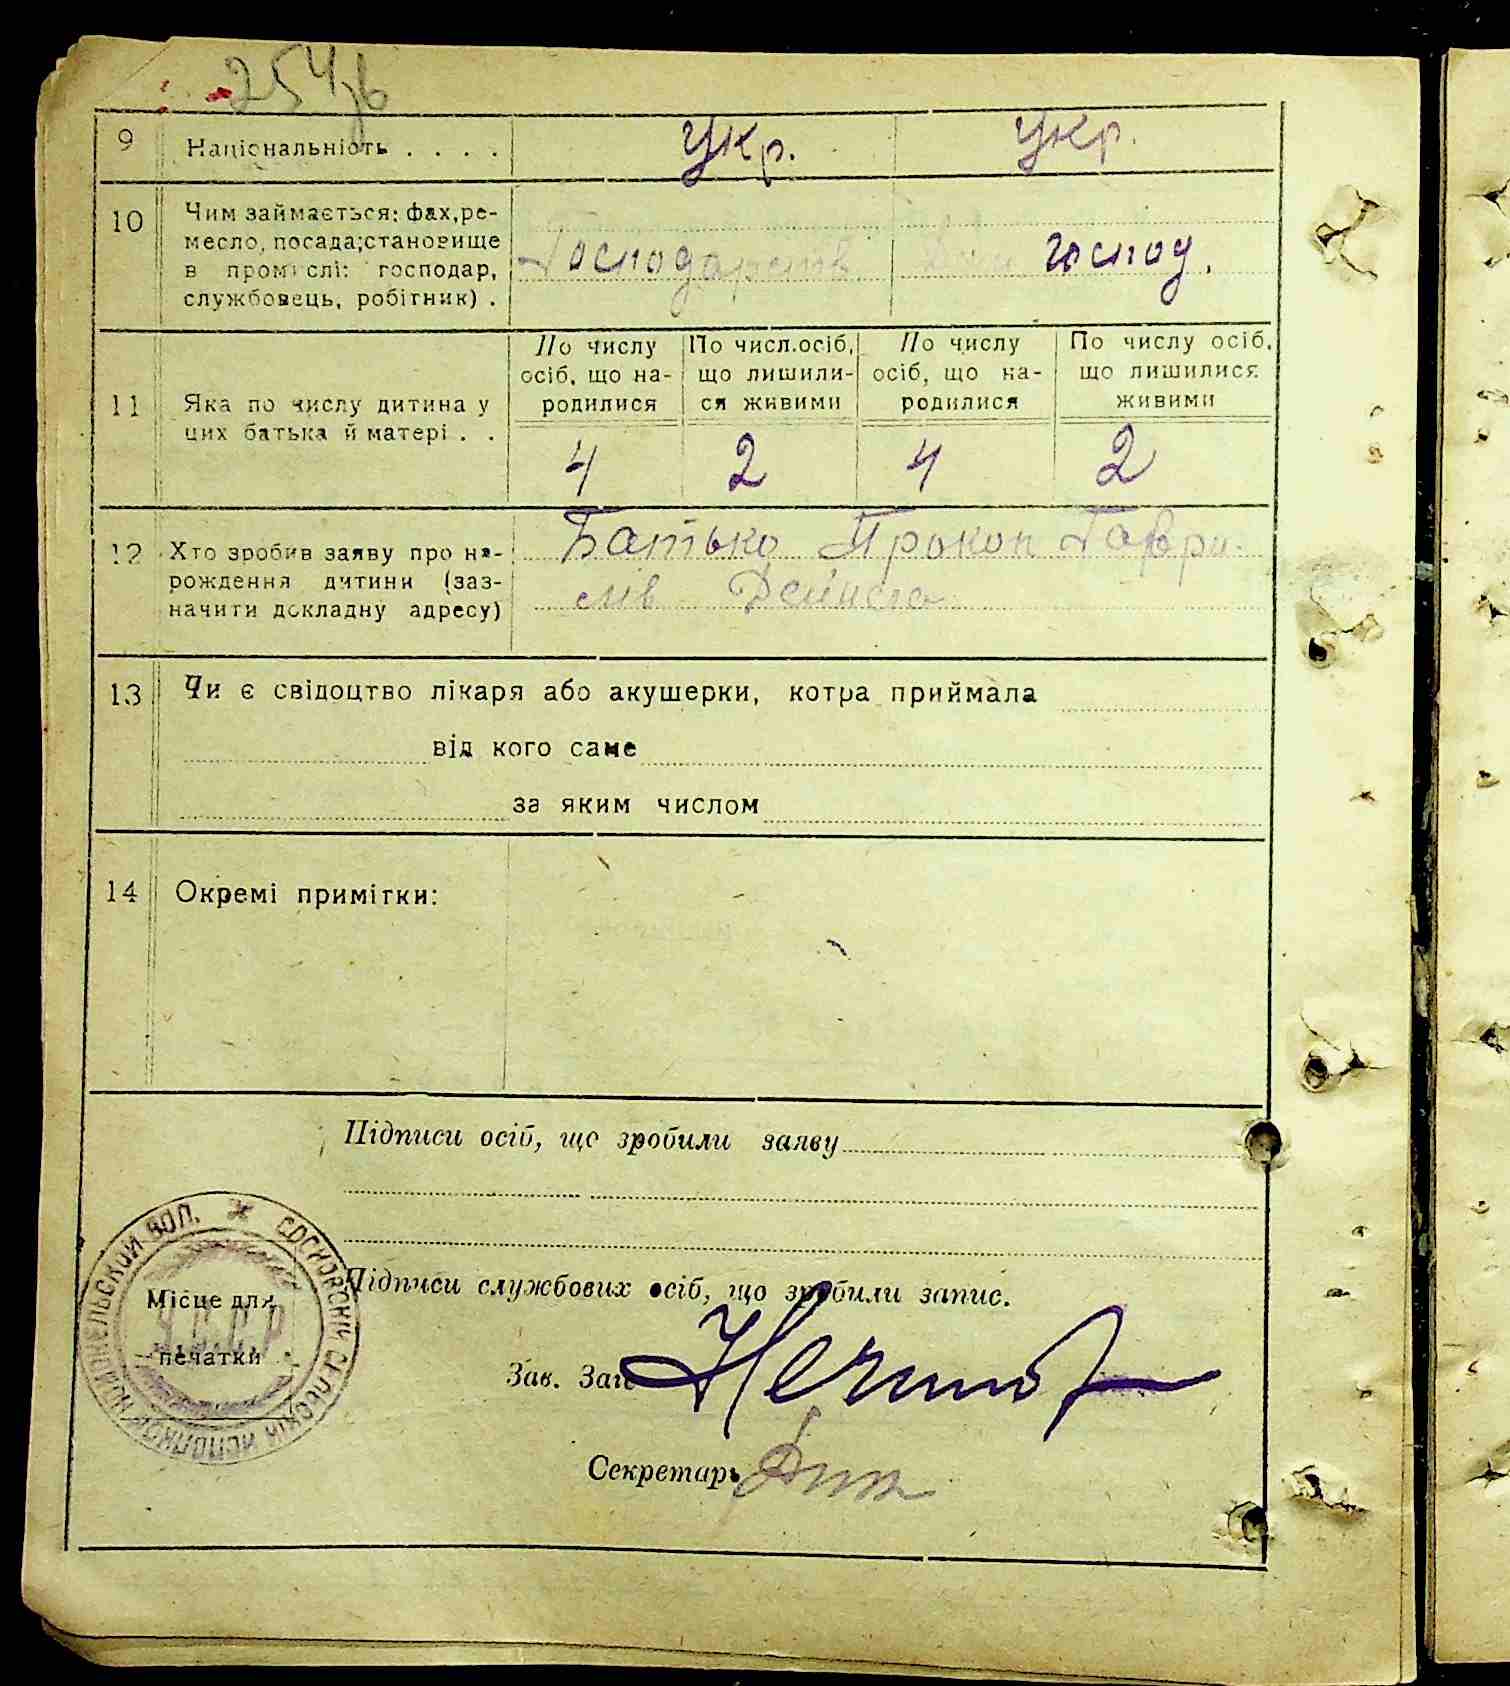 254зв
9 Національність . . . . Укр. Укр.
10 Чим займається: фах, ре-
месло, посада; становище
в промислі: господар,
службовець, робітник) .
Господарств господ.
По числу осіб, що на- родилися
По числ. осіб, що лишили- ся живими
По числу осіб, що на- родилися
По числу осіб, що лишилися живими
11 Яка по числу дитина у
цих батька й матері . .
4 2 4 2
12 Хто зробив заяву про на-
рождення дитини (заз-
начити докладну адресу)
Батько Прокоп Гаври-
лів Дейнега
13 Чи є свідоцтво лікаря або акушерки, котра приймала
від кого саме
за яким числом
14 Окремі примітки:
Підписи осіб, що зробили заяву
СОСНОВСКИЙ СЕЛЬСКИЙ ИСПОЛКОМ ВОЛ.
У.С.С.Р
Місце для
печатки
Підписи службових осіб, що зробили запис.
Зав. Заг
Секретарь